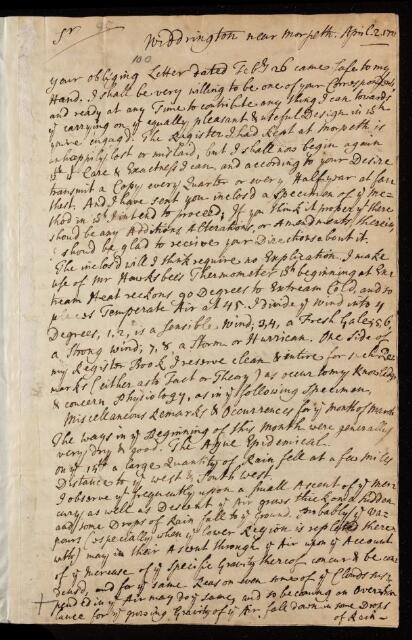 Sr
Widdrington near Morpeth. April. 2. 17
100
your obliging Letter dated Feby 26 came safe to my
Hand. I shall be very willing to be one of your Correspondents,
and ready at any Time to contribute any thing I can towards
ye carrying on ye equally pleasant & useful Design in wch
you're engag'd. The Register I had kept at Morpeth is
unhappily lost or mislaid, but I shall now begin again
wth ye Care & Exactness I can, and according to your Desire
transmit a Copy every Quarter or every Half year at far-
thest. And I have sent you inclos'd a Specimen of ye Me-
thod in wch I intend to proceed; If you think it proper there
should be any Additions Alterations, or Amendments therein
I should be glad to receive your Directions about it.
The inclos'd will I think require no Explication. I make
use of Mr Hawksbees Thermometer wch beginning at Ex-
tream Heat reckons 90 Degrees to Extream Cold, and so
places Temperate Air at 45. I divide ye Wind into 4
Degrees, 1, 2, is a Sensible Wind; 3, 4, a Fresh Gale; 5, 6,
a Strong wind; 7, 8 a Storm or Hurrican. One side of
my Register Book I reserve clean & entire for such Re-
marks (either as to Fact or Theory) as occur to my Knowledge
& concern Physiology, as in ye following Specimen.
Miscellaneous Remarks & Occurrences for ye month of March
The ways in ye Beginning of this Month were generally
very dry & good. The Ague Epidemical.
on ye 15th a large Quantity of Rain fell at a few miles
Distance to ye west & South west.
I observe yt frequently upon a small Ascent of ye Mer-
cury as well as Descent ye Air grows thick on a sudden
and some Drops of Rain fall to ye Ground. Probably ye Va-
pours (especially when ye lower Region is replete there
with) may in their Ascent through ye Air upon ye Account
of ye Increase of ye Specific Gravity thereof concur & be con-
dens'd, and for ye same Reason even some of ye Clouds sus-
pended in ye Air may do ye same, and so becoming an Overbal-
lance for ye Gravity of ye Air fall down in some Drops
of Rain